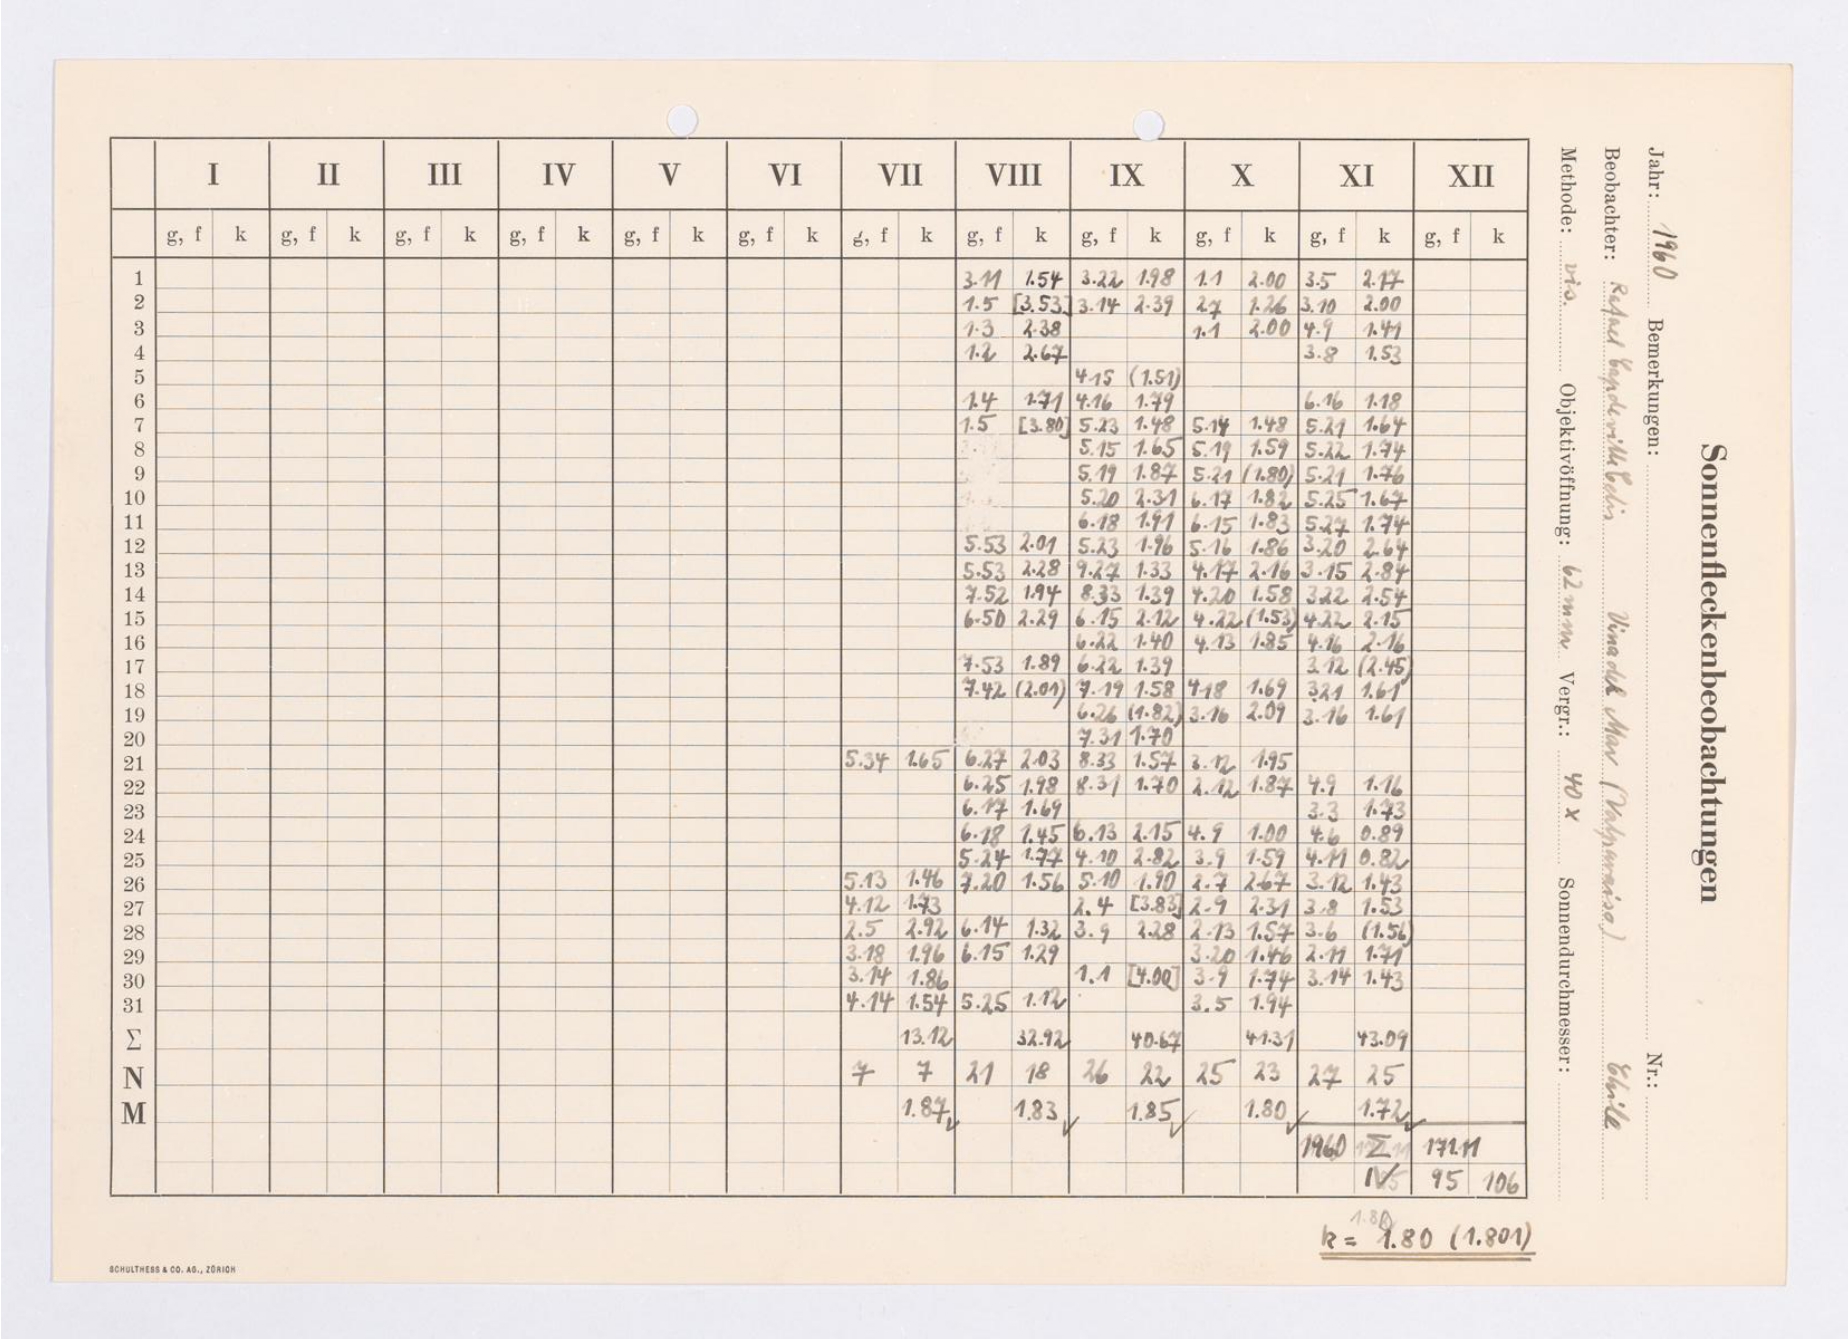 Sonnenfleckenbeobachtungen
Jahr: 1960 Bemerkungen: Nr.:
Beobachter: Rafael Capdeville Celis Vina del Mar (Valparaiso) Chile
Methode: vis. Objektivöffnung: 62 mm Vergr.: 40 x Sonnendurchmesser:
I II III IV V VI VII VIII IX X XI XII
g, f k g, f k g, f k g, f k g, f k g, f k g, f k g, f k g, f k g, f k g, f k g, f k
1 3.11 1.54 3.22 1.98 1.1 2.00 3.5 2.17
2 1.5 [3.53] 3.14 2.39 2.7 1.26 3.10 2.00
3 1.3 2.38 1.1 2.00 4.9 1.41
4 1.2 2.67 3.8 1.53
5 4.15 (1.51)
6 1.4 1.71 4.16 1.79 6.16 1.18
7 1.5 [3.80] 5.23 1.48 5.14 1.48 5.21 1.64
8 5.15 1.65 5.19 1.59 5.22 1.74
9 5.19 1.87 5.21 (1.80) 5.21 1.76
10 5.20 2.31 6.17 1.82 5.25 1.67
11 6.18 1.91 6.15 1.83 5.27 1.74
12 5.53 2.01 5.23 1.96 5.16 1.86 3.20 2.64
13 5.53 2.28 9.27 1.33 4.17 2.16 3.15 2.84
14 7.52 1.94 8.33 1.39 4.20 1.58 3.22 2.54
15 6.50 2.29 6.15 2.12 4.22 (1.53) 4.22 2.15
16 6.22 1.40 4.13 1.85 4.16 2.16
17 7.53 1.89 6.22 1.39 3.12 (2.45)
18 7.42 (2.01) 7.19 1.58 4.18 1.69 3.21 1.61
19 6.26 (1.82) 3.16 2.09 3.16 1.61
20 7.31 1.70
21 5.34 1.65 6.27 2.03 8.33 1.57 3.12 1.95
22 6.25 1.98 8.31 1.70 2.12 1.87 4.9 1.16
23 6.17 1.69 3.3 1.73
24 6.18 1.45 6.13 2.15 4.9 1.00 4.6 0.89
25 5.24 1.77 4.10 2.82 3.9 1.59 4.11 0.82
26 5.13 1.46 7.20 1.56 5.10 1.90 2.7 2.67 3.12 1.43
27 4.12 1.73 2.4 [3.83] 2.9 2.31 3.8 1.53
28 2.5 2.92 6.14 1.32 3.9 2.28 2.13 1.57 3.6 (1.56)
29 3.18 1.96 6.15 1.29 3.20 1.46 2.11 1.71
30 3.14 1.86 1.1 [4.00] 3.9 1.74 3.14 1.43
31 4.14 1.54 5.25 1.12 3.5 1.94
Σ 13.12 32.92 40.67 41.31 43.09
N 7 7 21 18 26 22 25 23 27 25
M 1.87 1.83 1.85 1.80 1.72
1960 Σ 171.11
N 95 106
1.80
k = 1.80 (1.801)
SCHULTHESS & CO. AG., ZÜRICH